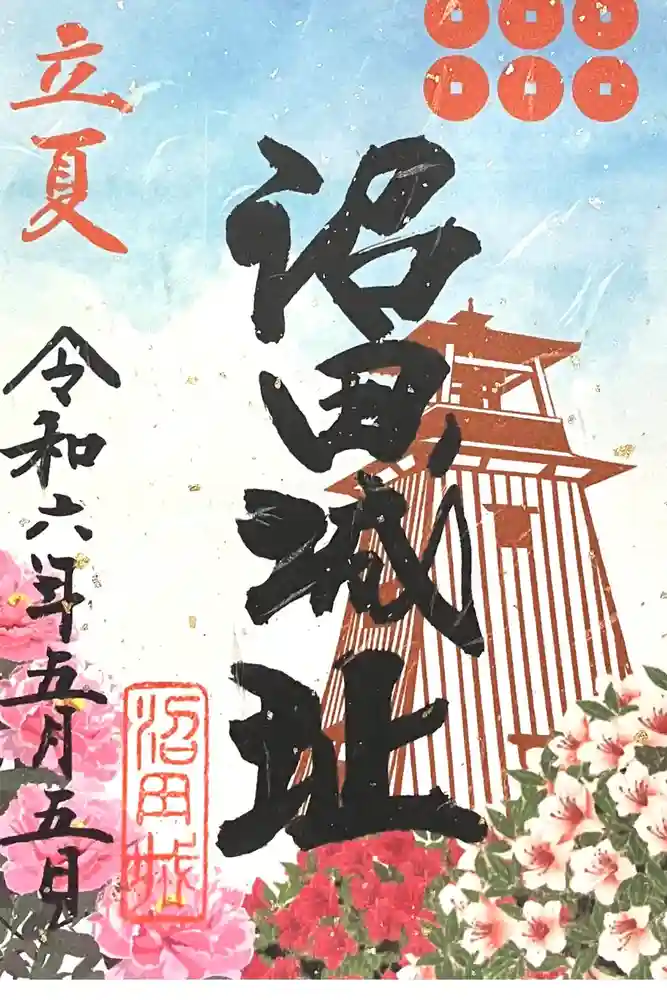 沼田城址
立夏
令和六年五月五日
沼田城